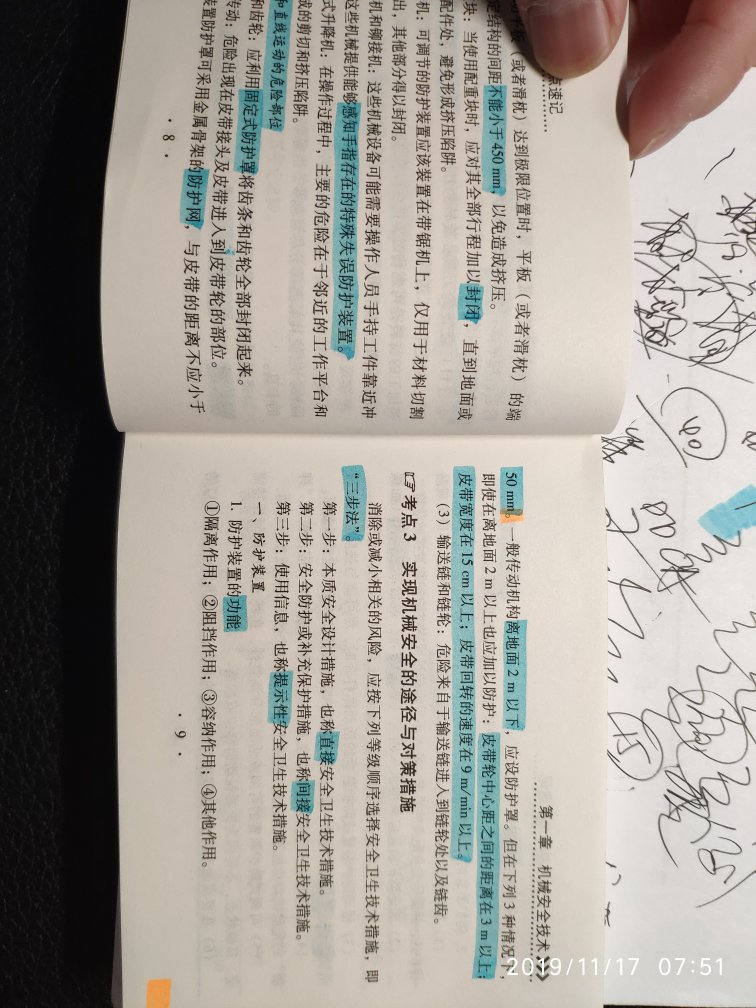 点速记
平板（或者滑枕）达到极限位置时，平板（或者滑枕）的端
定结构的间距不能小于 450 mm，以免造成挤压。
块：当使用配重块时，应对其全部行程加以封闭，直到地面或
配件处，避免形成挤压陷阱。
机：可调节的防护装置应该装置在带锯机上，仅用于材料切割
出，其他部分得以封闭。
机和铆接机：这些机械设备可能需要操作人员手持工件靠近冲
这些机械提供能够感知手指存在的特殊失误防护装置。
式升降机：在操作过程中，主要的危险在于邻近的工作平台和
成的剪切和挤压陷阱。
和直线运动的危险部位
和齿轮：应利用固定式防护罩将齿条和齿轮全部封闭起来。
传动：危险出现在皮带接头及皮带进入到皮带轮的部位。
装置防护罩可采用金属骨架的防护网，与皮带的距离不应小于
· 8 ·
第一章 机械安全技术
50 mm。一般传动机构离地面 2 m 以下，应设防护罩。但在下列 3 种情况下，
即使在离地面 2 m 以上也应加以防护：皮带轮中心距之间的距离在 3 m 以上；
皮带宽度在 15 cm 以上；皮带回转的速度在 9 m/min 以上。
（3）输送链和链轮：危险来自于输送链进入到链轮处以及链齿。
考点 3 实现机械安全的途径与对策措施
消除或减小相关的风险，应按下列等级顺序选择安全卫生技术措施，即
“三步法”。
第一步：本质安全设计措施，也称直接安全卫生技术措施。
第二步：安全防护或补充保护措施，也称间接安全卫生技术措施。
第三步：使用信息，也称提示性安全卫生技术措施。
一、防护装置
1. 防护装置的功能
①隔离作用；②阻挡作用；③容纳作用；④其他作用。
· 9 ·
2019/11/17 07:51